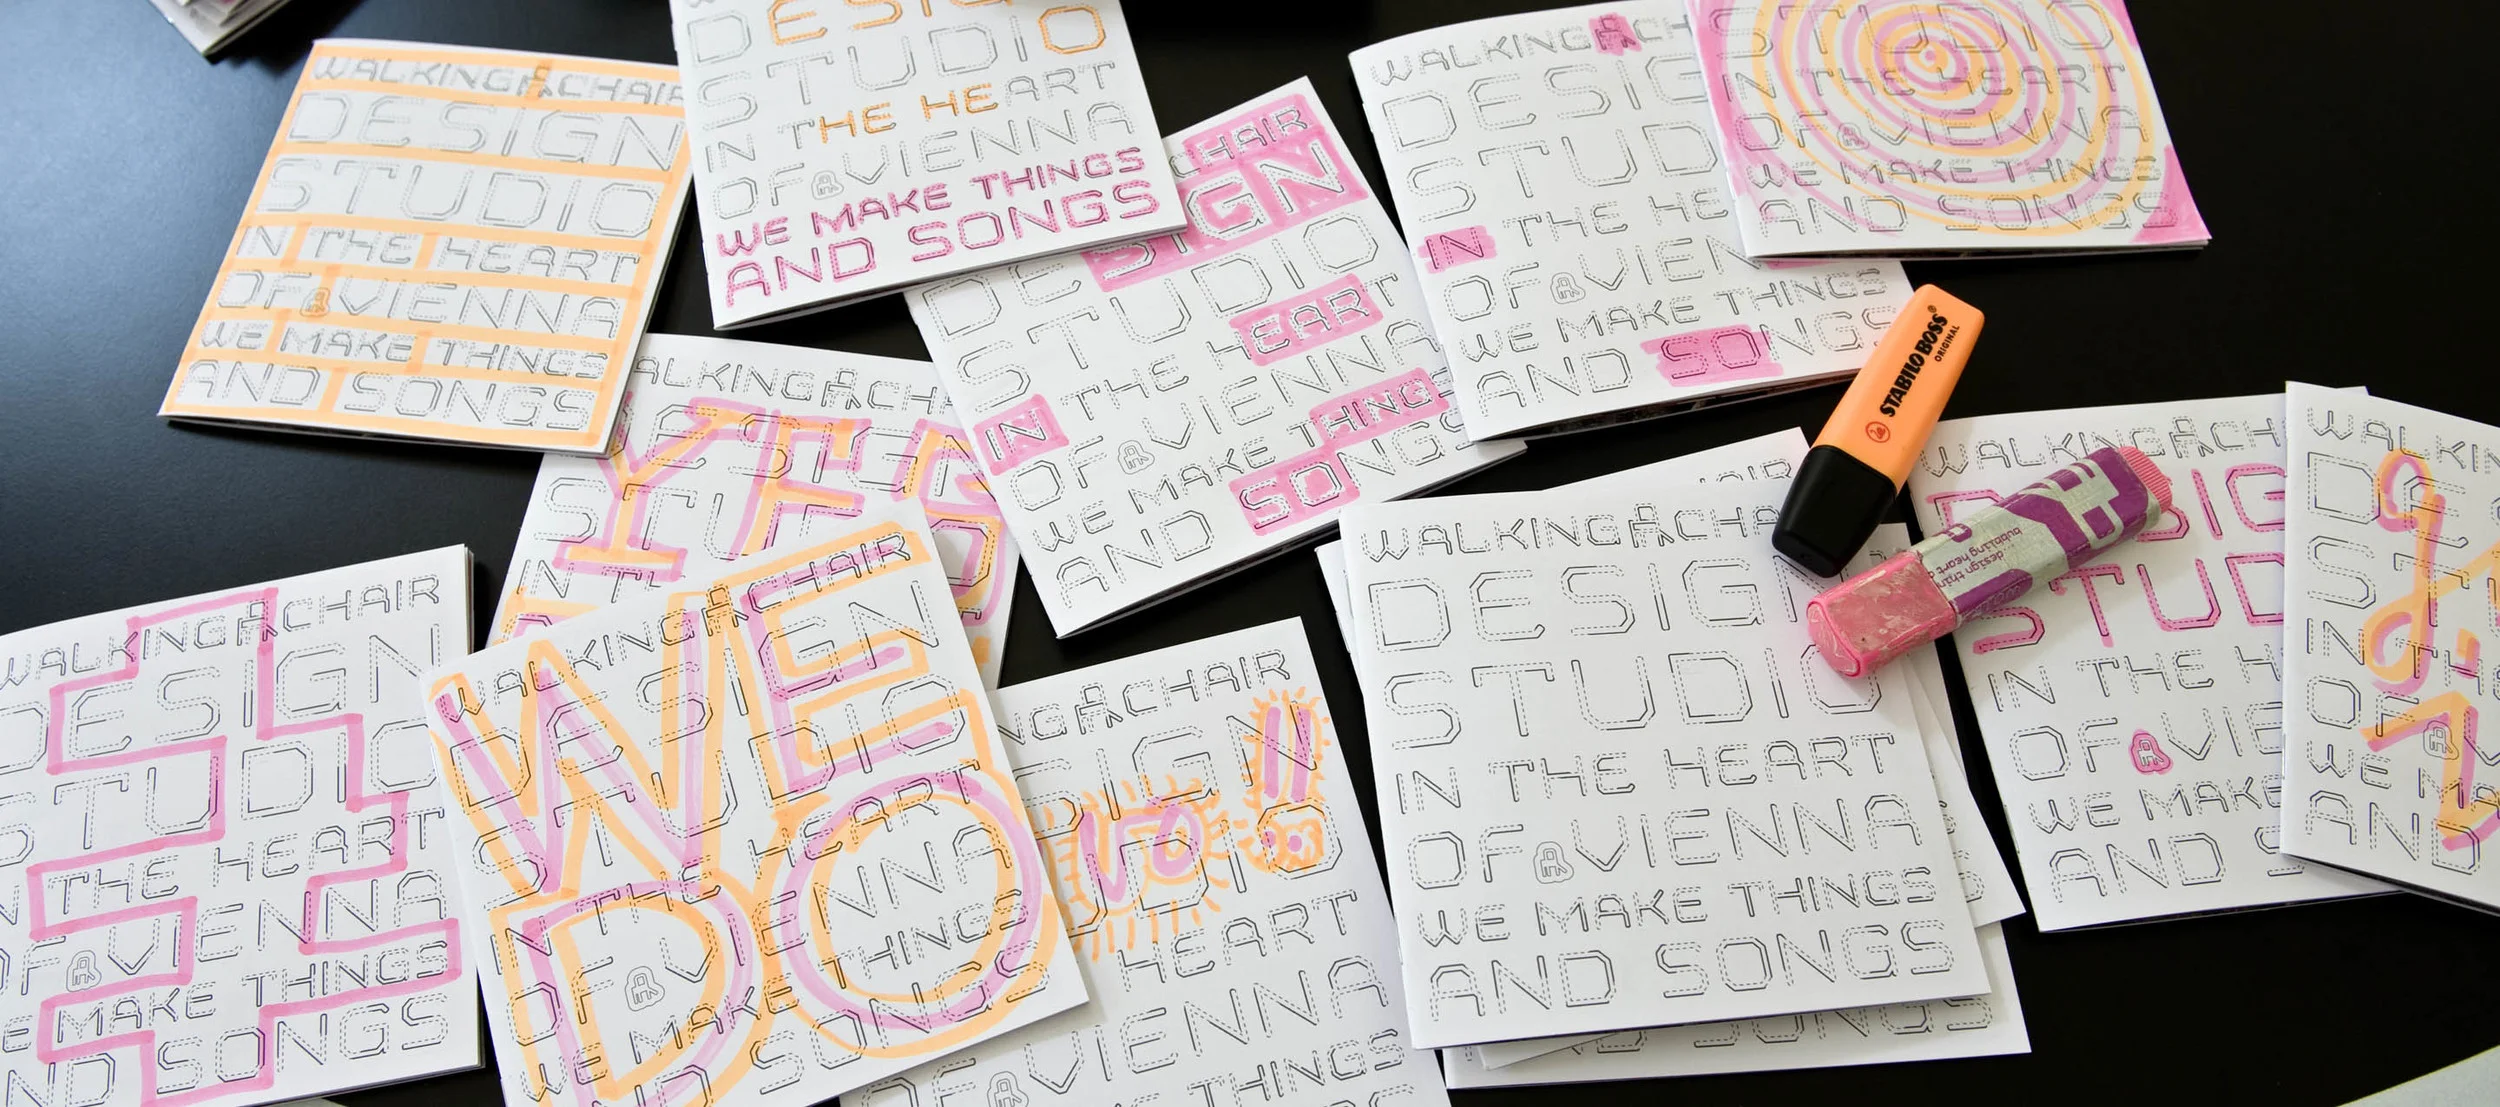 WALKING CHAIR
DESIGN
STUDIO
IN THE HEART
OF VIENNA
WE MAKE THINGS
AND SONGS
DESIGN
STUDIO
IN THE HEART
OF VIENNA
WE MAKE THINGS
AND SONGS
CHAIR
DESIGN
STUDIO
IN THE HEART
OF VIENNA
WE MAKE THINGS
AND SONGS
WALKING CH
DESIG
STUD
IN THE HE
OF VIEN
WE MAKE THINGS
AND SONGS
STUDIO
IN THE HEART
OF VIENNA
WE MAKE THINGS
AND SONGS
STABILO BOSS
ORIGINAL
ALKING CHA
STU
IN TH
WALKING CHAIR
DESIGN
STUDIO
THE HEART
OF VIENNA
MAKE THINGS
AND SONGS
WALKING CHAIR
DESIGN
STUDIO
IN THE HEART
OF VIENNA
WE MAKE THINGS
AND SONGS
WE
DO
NG CHAIR
SIGN
HEART
OF VIENNA
THINGS
WALKING CHA
DESIGN
STUDIO
IN THE HEART
OF VIENNA
WE MAKE THINGS
AND SONGS
SONGS
WALKING CHAIR
DESIG
STUD
IN THE H
OF VIE
WE MAKE
AND S
design thin
bubbling heart o
WALKIN
D
S
IN TH
O
WE M
AND